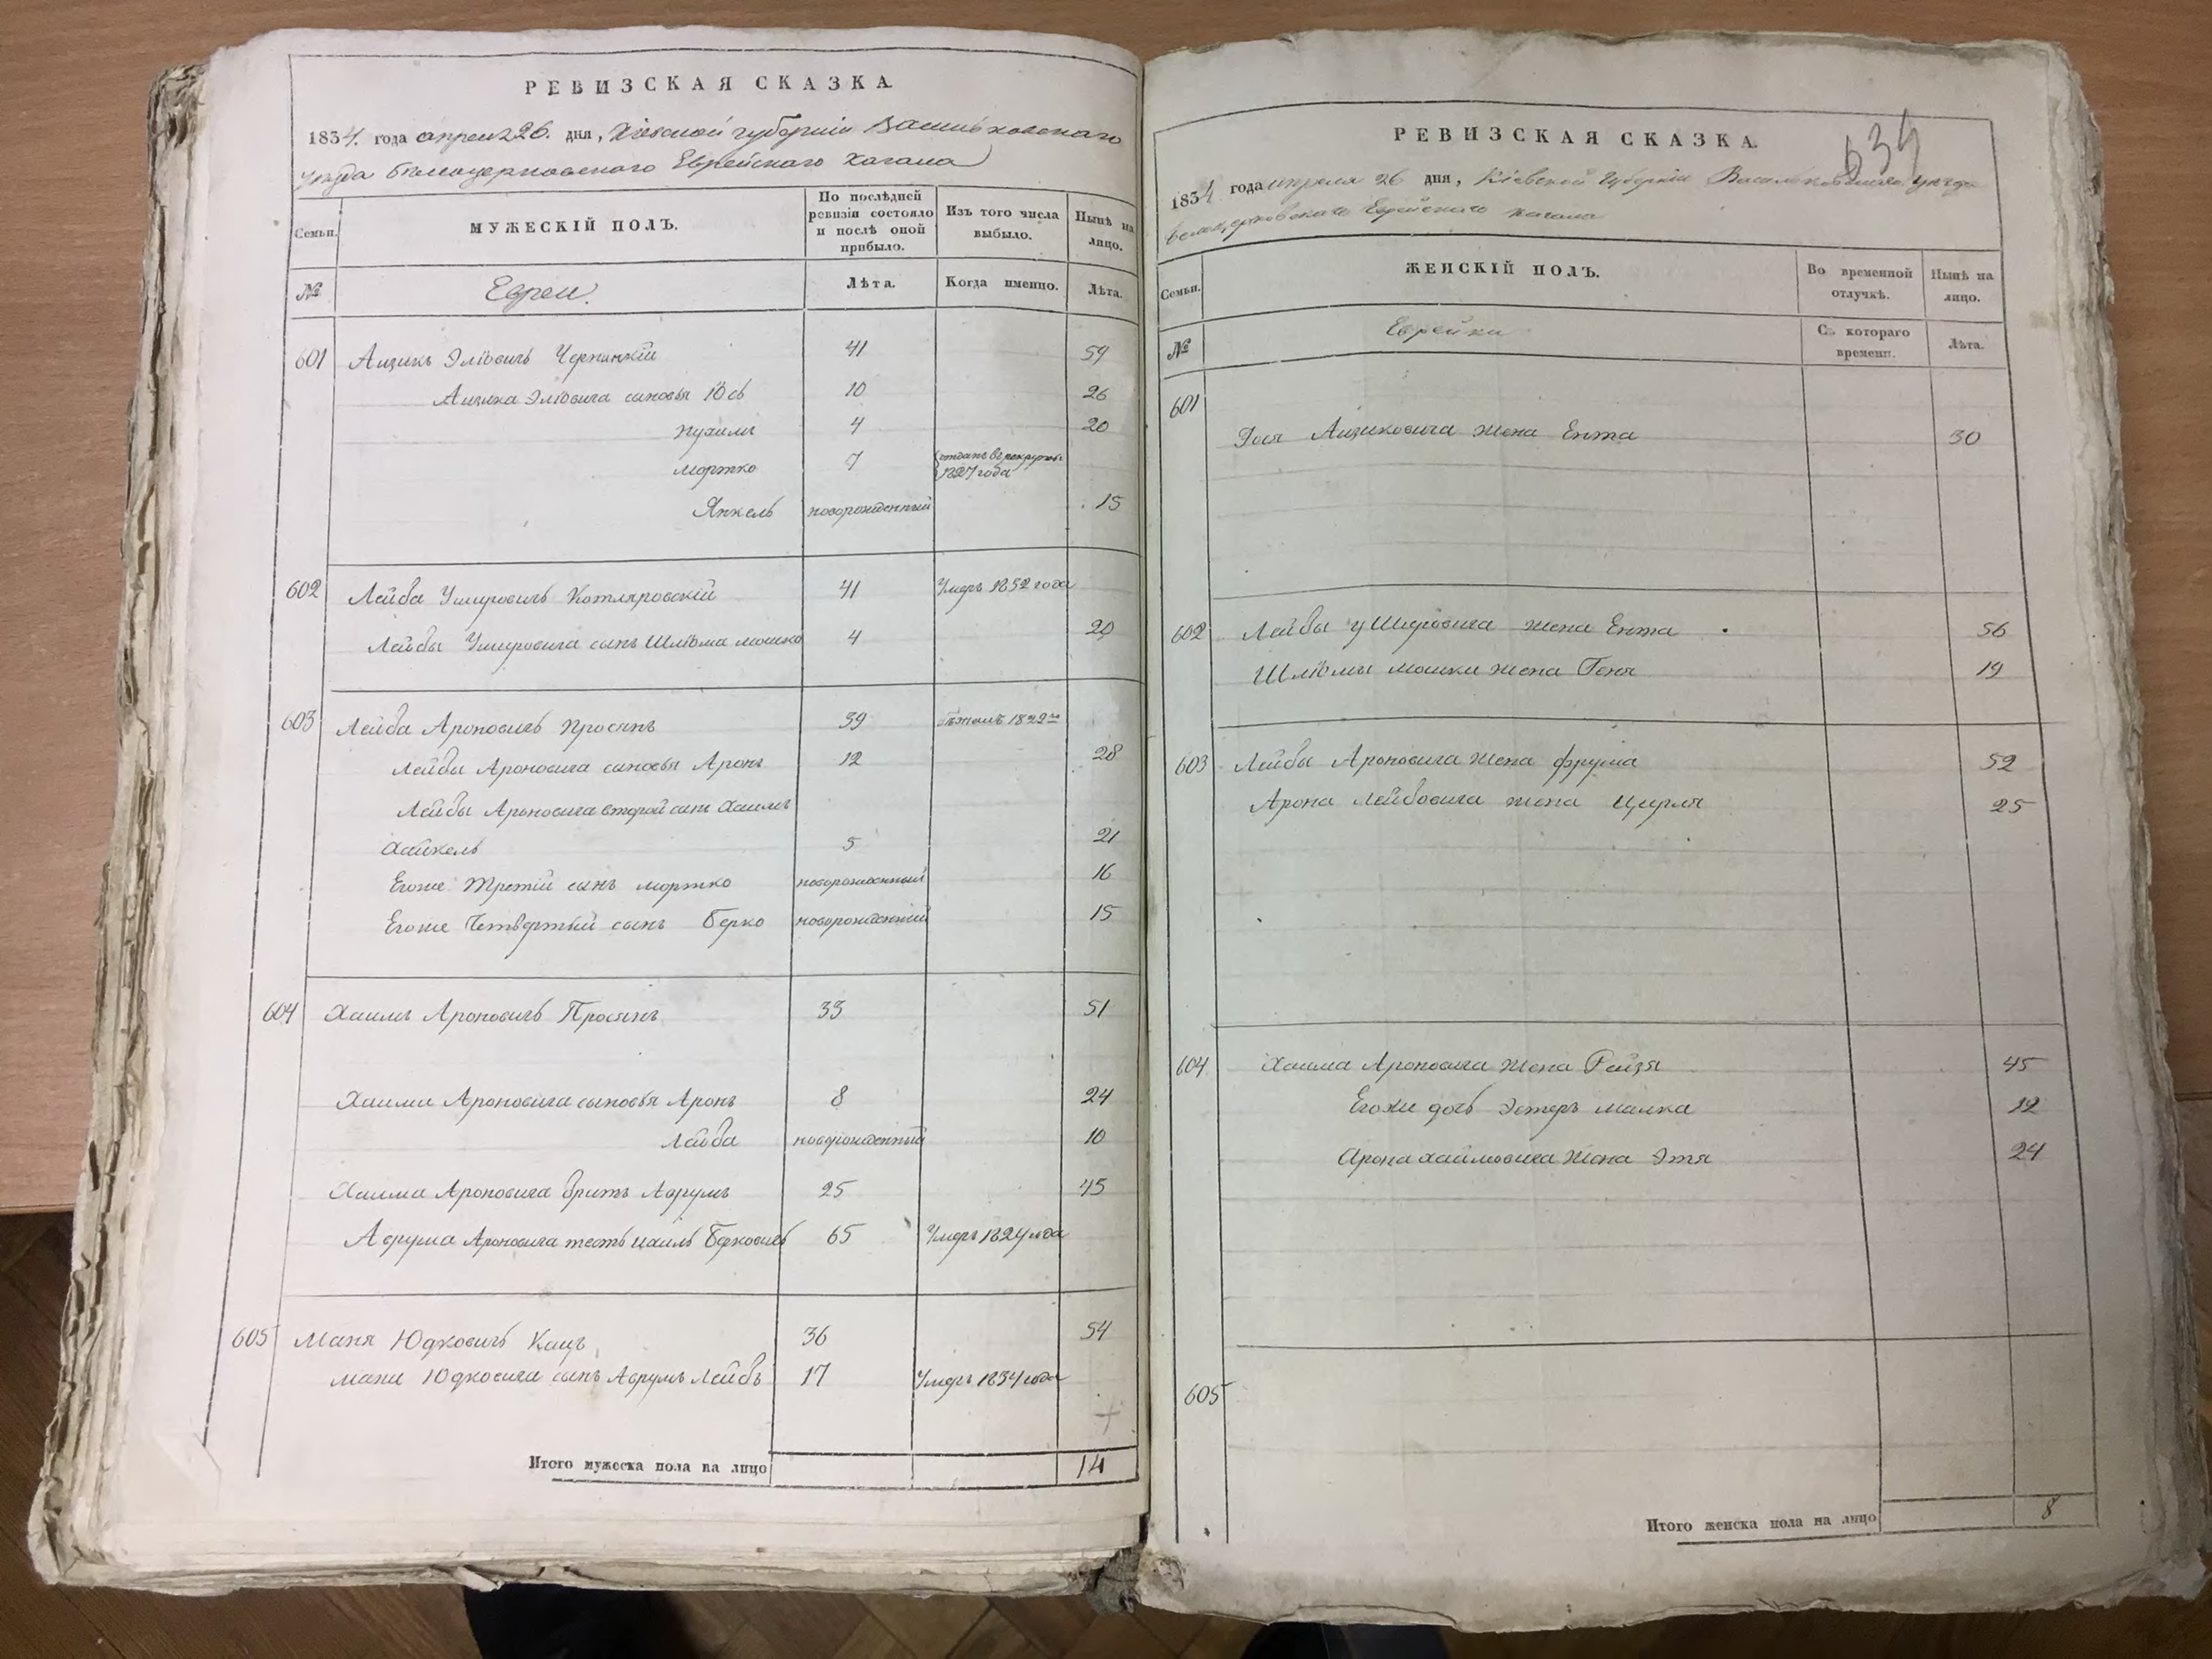 РЕВИЗСКАЯ СКАЗКА.
1834. года апреля 26. дня, Кіевской губерніи Васильковского
уезда белоцерковского Еврейского Кагала
Семьи.
МУЖЕСКІЙ ПОЛЪ.
По послѣдней ревизіи состояло и послѣ оной прибыло.
Изъ того числа выбыло.
Нынѣ на лицо.
№
Евреи.
Лѣта.
Когда именно.
Лѣта.
601 Аицикъ Эліовичъ 41 59
Аицика Эліовича сыновья Іось 10 26
Нухимъ 4 20
Мортко 7 отданъ в рекруты 1827 года
Янкель новорожденный 15
602 Лейба Ушеровичъ Котляровскій 41 Умеръ 1832 года
Лейбы Ушеровича сынъ Шліома мошко 4 20
603 Лейба Ароновичъ Просянъ 39 1822
Лейбы Ароновича сыновья Аронъ 12 28
Лейбы Ароновича второй сынъ Хаимъ
Хайкель 5 21
Егоже Третій сынъ мортко новорожденный 16
Егоже Четвертый сынъ Берко новорожденный 15
604 Хаимъ Ароновичъ Просянъ 33 51
Хаима Ароновича сыновья Аронъ 8 24
Лейба новорожденный 10
Хаима Ароновича братъ Аврумъ 25 45
Аврума Ароновича тесть Берковичъ 65 Умеръ 1824 года
605 Маня Юдковичъ Кацъ 36 54
мани Юдковича сынъ Аврумъ Лейбъ 17 Умеръ 1834 года
Итого мужеска пола на лицо 14
634
РЕВИЗСКАЯ СКАЗКА.
1834 года апреля 26 дня, Кіевской Губерніи Васильковского уезда
белоцерковского Еврейского кагала
Семьи.
ЖЕНСКІЙ ПОЛЪ.
Во временной отлучкѣ.
Нынѣ на лицо.
№
Еврейки
Съ котораго времени.
Лѣта.
601
Аициковича жена Ента 30
602 Лейбы Ушеровича жена Ента 56
Шліомы мошки жена Геня 19
603 Лейбы Ароновича жена фрума 52
Арона Лейбовича жена Цирля 25
604 Хаима Ароновича жена Рейзя 45
Егоже дочь Эстеръ малка 12
Арона хаймовича жена Этя 24
605
Итого женска пола на лицо 8